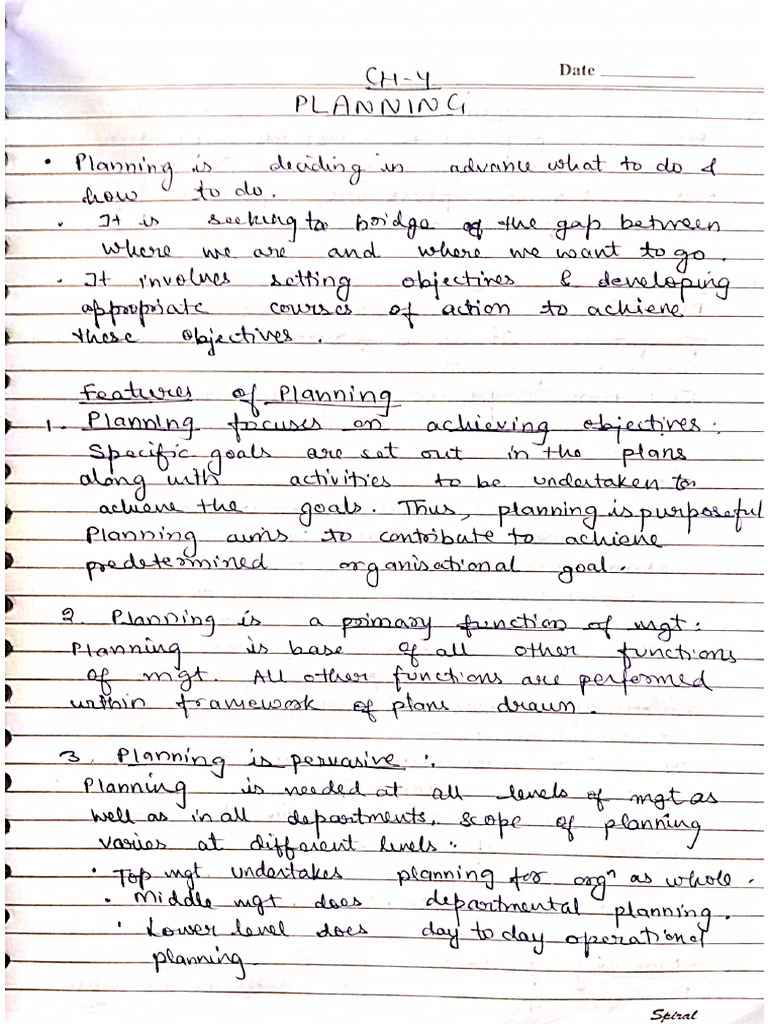 Date
CH-4
PLANNING
• Planning is deciding in advance what to do &
how to do.
• It is seeking to bridge of the gap between
where we are and where we want to go.
• It involves setting objectives & developing
appropriate courses of action to achieve
these objectives.
Features of Planning
1. Planning focuses on achieving objectives:
Specific goals are set out in the plans
along with activities to be undertaken to
achieve the goals. Thus, planning is purposeful
Planning aims to contribute to achieve
predetermined organisational goal.
2. Planning is a primary function of mgt:
Planning is base of all other functions
of mgt. All other functions are performed
within framework of plans drawn.
3. Planning is pervasive:
Planning is needed at all levels of mgt as
well as in all departments. scope of planning
varies at different levels:
• Top mgt undertakes planning for orgⁿ as whole.
• Middle mgt does departmental planning.
• Lower level does day to day operational
planning
Spiral